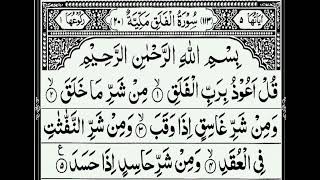 اٰيَاتُهَا ٥ (١١٣) سُوْرَةُ الْفَلَقِ مَكِّيَّةٌ (٢٠) رُكُوْعُهَا ١
بِسْمِ اللّٰهِ الرَّحْمٰنِ الرَّحِيْمِ
قُلْ اَعُوْذُ بِرَبِّ الْفَلَقِ ۙ﴿١﴾ مِنْ شَرِّ مَا خَلَقَ ۙ﴿٢﴾
وَمِنْ شَرِّ غَاسِقٍ اِذَا وَقَبَ ۙ﴿٣﴾ وَمِنْ شَرِّ النَّفّٰثٰتِ
فِى الْعُقَدِ ۙ﴿٤﴾ وَمِنْ شَرِّ حَاسِدٍ اِذَا حَسَدَ ۧ﴿٥﴾